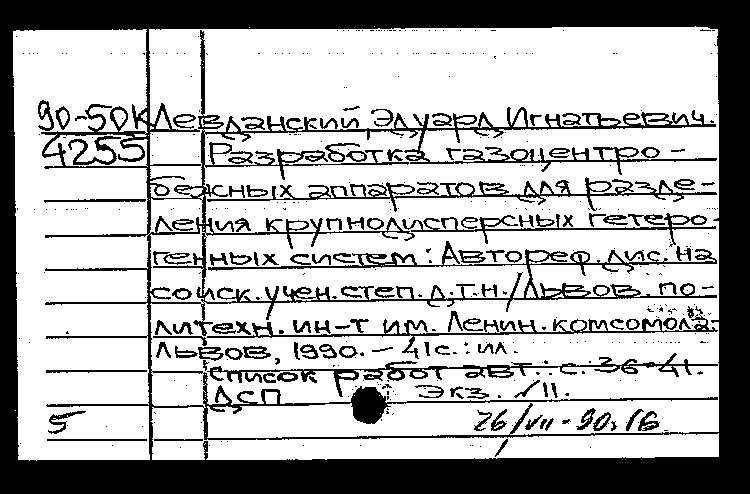 90-5DК Левданский, Эдуард Игнатьевич.
4255 Разработка газоцентро-
бежных аппаратов для разде-
ления крупнодисперсных гетеро-
генных систем: Автореф. дис. на
соиск. учен. степ. д.т.н./Львов. по-
литехн. ин-т им. Ленин. комсомола.-
Львов, 1990. - 41с.: ил.
Список работ авт.: с. 36-41.
ДСП Экз. √ 11.
5 26/VII-90.16